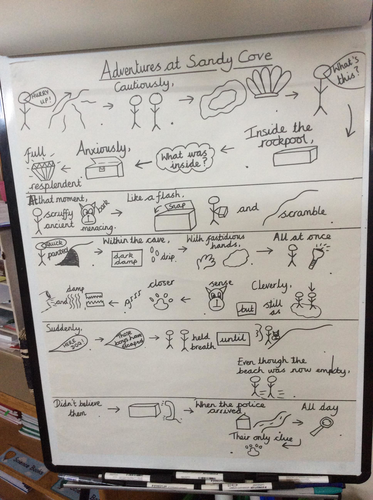 Adventures at Sandy Cove
HURRY UP!
Cautiously,
What's this?
Inside the rockpool,
What was inside?
Anxiously,
full
resplendent
At that moment,
scruffy
ancient
bark
menacing.
Like a flash,
snap
and
scramble
quick
panted
Within the cave,
dark
damp
drip
With fastidious
hands,
All at once
Cleverly,
but
still
as
sense
closer
damp
sand
Suddenly,
Those
boys have
escaped
held
breath
until
Even though the
beach was now empty,
Didn't believe
them
When the police
arrived
All day
Their only clue